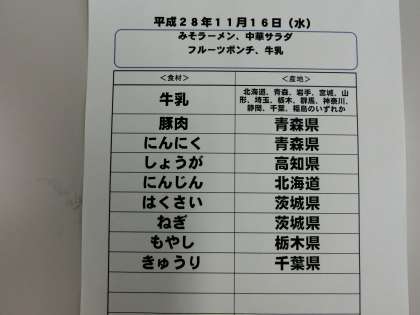 平成28年11月16日（水）
みそラーメン、中華サラダ
フルーツポンチ、牛乳
＜食材＞ ＜産地＞
牛乳 北海道、青森、岩手、宮城、山
形、埼玉、栃木、群馬、神奈川、
静岡、千葉、福島のいずれか
豚肉 青森県
にんにく 青森県
しょうが 高知県
にんじん 北海道
はくさい 茨城県
ねぎ 茨城県
もやし 栃木県
きゅうり 千葉県